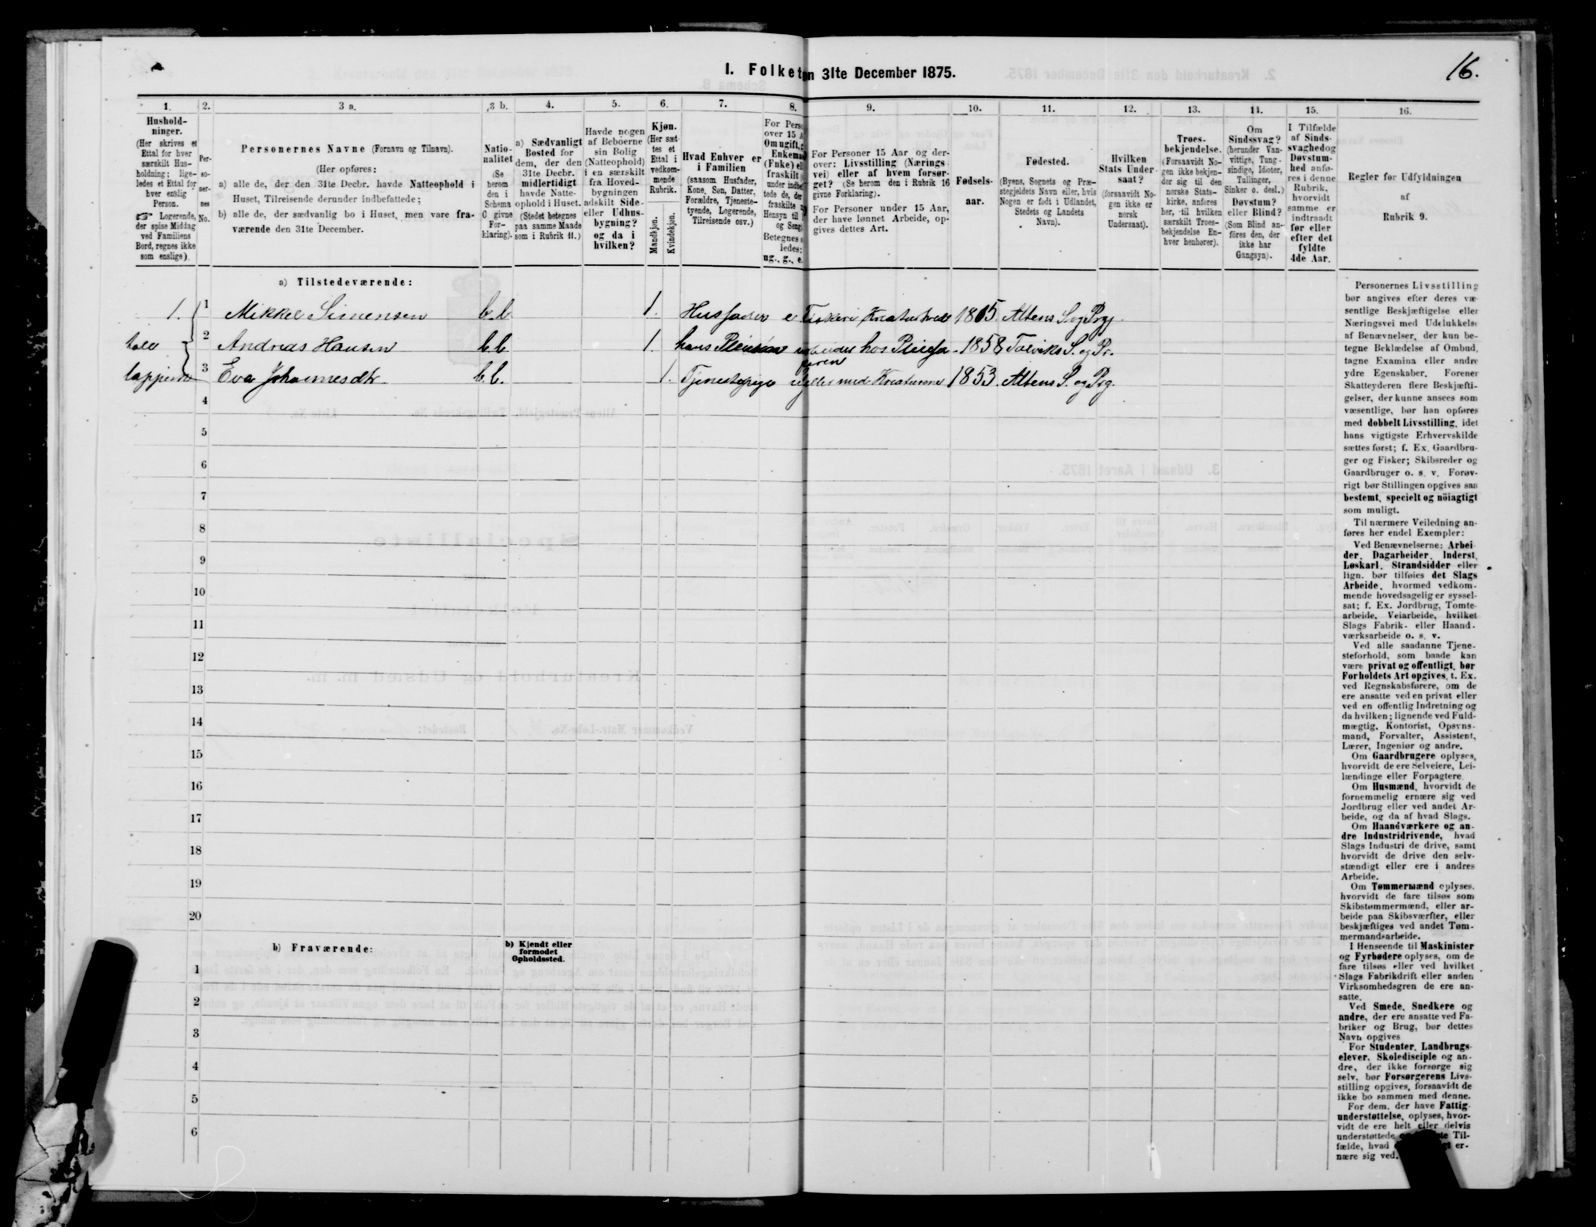 16.
I. Folket n 31te December 1875.
1.
Hushold-
ninger.
(Her skrives et
Ettal for hver
særskilt Hus-
holdning; lige-
ledes et Ettal for
hver enslig
Person.
Logerende,
der spise Middag
ved Familiens
Bord, regnes ikke
som enslige).
2.
Per-
so-
ner-
nes
No.
3 a.
Personernes Navne (Fornavn og Tilnavn).
(Her opføres:
a) alle de, der den 31te Decbr. havde Natteophold i
Huset, Tilreisende derunder indbefattede;
b) alle de, der sædvanlig bo i Huset, men vare fra-
værende den 31te December.
3 b.
Natio-
nalitet
(Se
herom
den i
Schema
C givne
For-
klaring).
4.
a) Sædvanligt
Bosted for
dem, der den
31te Decbr.
midlertidigt
havde Natte-
ophold i Huset.
(Stedet betegnes
paa samme Maade
som i Rubrik 11.)
5.
Havde nogen
af Beboerne
sin Bolig
(Natteophold)
i en særskilt
fra Hoved-
bygningen
adskilt Side-
eller Udhus-
bygning?
og da i
hvilken?
6.
Kjøn.
(Her sæt-
tes et
Ettal i
vedkom-
mende
Rubrik.
Mandkjøn.
Kvindekjøn.
7.
Hvad Enhver er
i Familien
(saasom Husfader,
Kone, Søn, Datter,
Forældre, Tjeneste-
tyende, Logerende,
Tilreisende osv.)
8.
For Pers
over 15 A
Om ugift, g
Enkem
(Fraskilt
under indbe
tede de, der
fraskilte
Hensyn til
og Seng
Betegnes
ledes:
ug., g., e.
9.
For Personer 15 Aar og der-
over: Livsstilling (Nærings-
vei) eller af hvem forsør-
get? (Se herom den i Rubrik 16
givne Forklaring).
For Personer under 15 Aar,
der have lønnet Arbeide, op-
gives dettes Art.
10.
Fødsels-
aar.
11.
Fødested.
(Byens, Sognets og Præ-
stegjeldets Navn eller, hvis
Nogen er født i Udlandet,
Stedets og Landets
Navn).
12.
Hvilken
Stats Under-
saat?
(forsaavidt No-
gen ikke er
norsk
Undersaat).
13.
Troes-
bekjendelse.
(Forsaavidt No-
gen ikke bekjen-
der sig til den
norske Stats-
kirke, anføres
her, til hvilken
særskilt Troes-
bekjendelse En-
hver henhører).
14.
Om
Sindssvag?
(herunder Van-
vittige, Tung-
sindige, Idioter,
Tullinger,
Sinker o. desl.)
Døvstum?
eller Blind?
(Som Blind an-
føres den, der
ikke har
Gangsyn).
15.
I Tilfælde
af Sinds-
svaghed og
Døvstum-
hed anfø-
res i denne
Rubrik,
hvorvidt
samme er
indtraadt
før eller
efter det
fyldte
4de Aar.
16.
Regler for Udfyldningen
af
Rubrik 9.
a) Tilstedeværende:
1. 1 Mikkel Simensen b. b. 1. Husfader e Fiskeri Kreaturhold 1805. Altens S. og Prgj.
halv 2 Andreas Hansen b. b. 1. hans arbeider hos 1858 Talviks S. og Pr.
lapper 3 Eva Johannesdtr. b. b. 1. Tjenestepige med Kreaturene 1853. Altens S. og Prg.
4
5
6
7
8
9
10
11
12
13
14
15
16
17
18
19
20
b) Fraværende:
b) Kjendt eller
formodet
Opholdssted.
1
2
3
4
5
6
Personernes Livsstilling
bør angives efter deres væ-
sentlige Beskjæftigelse eller
Næringsvei med Udelukkelse
af Benævnelser, der kun be-
tegne Beklædelse af Ombud,
tagne Examina eller andre
ydre Egenskaber. Forener
Skatteyderen flere Beskjæfti-
gelser, der kunne ansees som
væsentlige, bør han opføres
med dobbelt Livsstilling, idet
hans vigtigste Erhvervskilde
sættes først; f. Ex. Gaardbru-
ger og Fisker; Skibsreder og
Gaardbruger o. s. v. Forøv-
rigt bør Stillingen opgives saa
bestemt, specielt og nøiagtigt
som muligt.
Til nærmere Veiledning an-
føres her endel Exempler:
Ved Benævnelserne: Arbei-
der, Dagarbeider, Inderst,
Løskarl, Strandsidder eller
lign. bør tilføies det Slags
Arbeide, hvormed vedkom-
mende hovedsagelig er syssel-
sat; f. Ex. Jordbrug, Tomte-
arbeide, Veiarbeide, hvilket
Slags Fabrik- eller Haand-
værksarbeide o. s. v.
Ved alle saadanne Tjene-
steforhold, som baade kan
være privat og offentligt, bør
Forholdets Art opgives, t. Ex.
ved Regnskabsførere, om de
ere ansatte ved en privat eller
ved en offentlig Indretning og
da hvilken; lignende ved Fuld-
mægtig, Kontorist, Opsyns-
mand, Forvalter, Assistent,
Lærer, Ingeniør og andre.
Om Gaardbrugere oplyses,
hvorvidt de ere Selveiere, Lei-
lændinge eller Forpagtere.
Om Husmænd, hvorvidt de
fornemmelig ernære sig ved
Jordbrug eller ved andet Ar-
beide, og da af hvad Slags.
Om Haandværkere og an-
dre Industridrivende, hvad
Slags Industri de drive, samt
hvorvidt de drive den selv-
stændigt eller ere i andres
Arbeide.
Om Tømmermænd oplyses,
hvorvidt de fare tilsøs som
Skibstømmermænd, eller ar-
beide paa Skibsværfter, eller
beskjæftiges ved andet Tøm-
mermandsarbeide.
I Henseende til Maskinister
og Fyrbødere oplyses, om de
fare tilsøs eller ved hvilket
Slags Fabrikdrift eller anden
Virksomhedsgren de ere an-
satte.
Ved Smede, Snedkere og
andre, der ere ansatte ved Fa-
briker og Brug, bør dettes
Navn opgives
For Studenter, Landbrugs-
elever, Skoledisciple og an-
dre, der ikke forsørge sig
selv, bør Forsørgerens Livs-
stilling opgives, forsaavidt de
ikke bo sammen med denne.
For dem, der have Fattig-
understøttelse, oplyses, hvor-
vidt de ere helt eller delvis
understøttede Til-
fælde, hvad er-
nære sig ved.